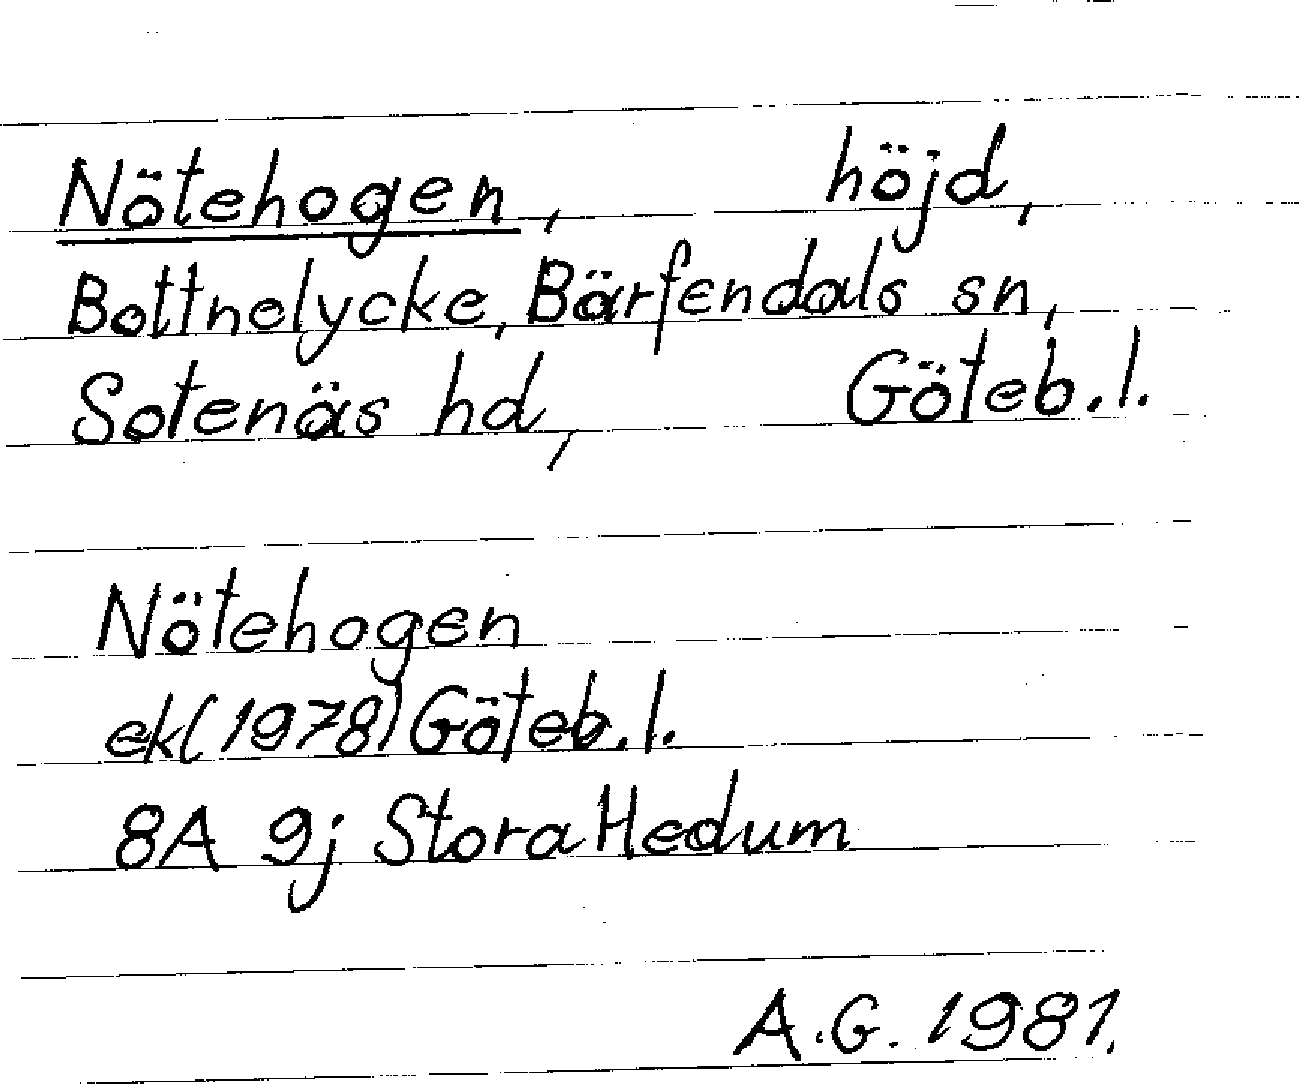 Nötehogen, höjd,
Bottnelycke, Bärfendals sn,
Sotenäs hd, Göteb.l.
Nötehogen
ek(1978) Göteb.l.
8A 9j Stora Hedum
A.G. 1981.